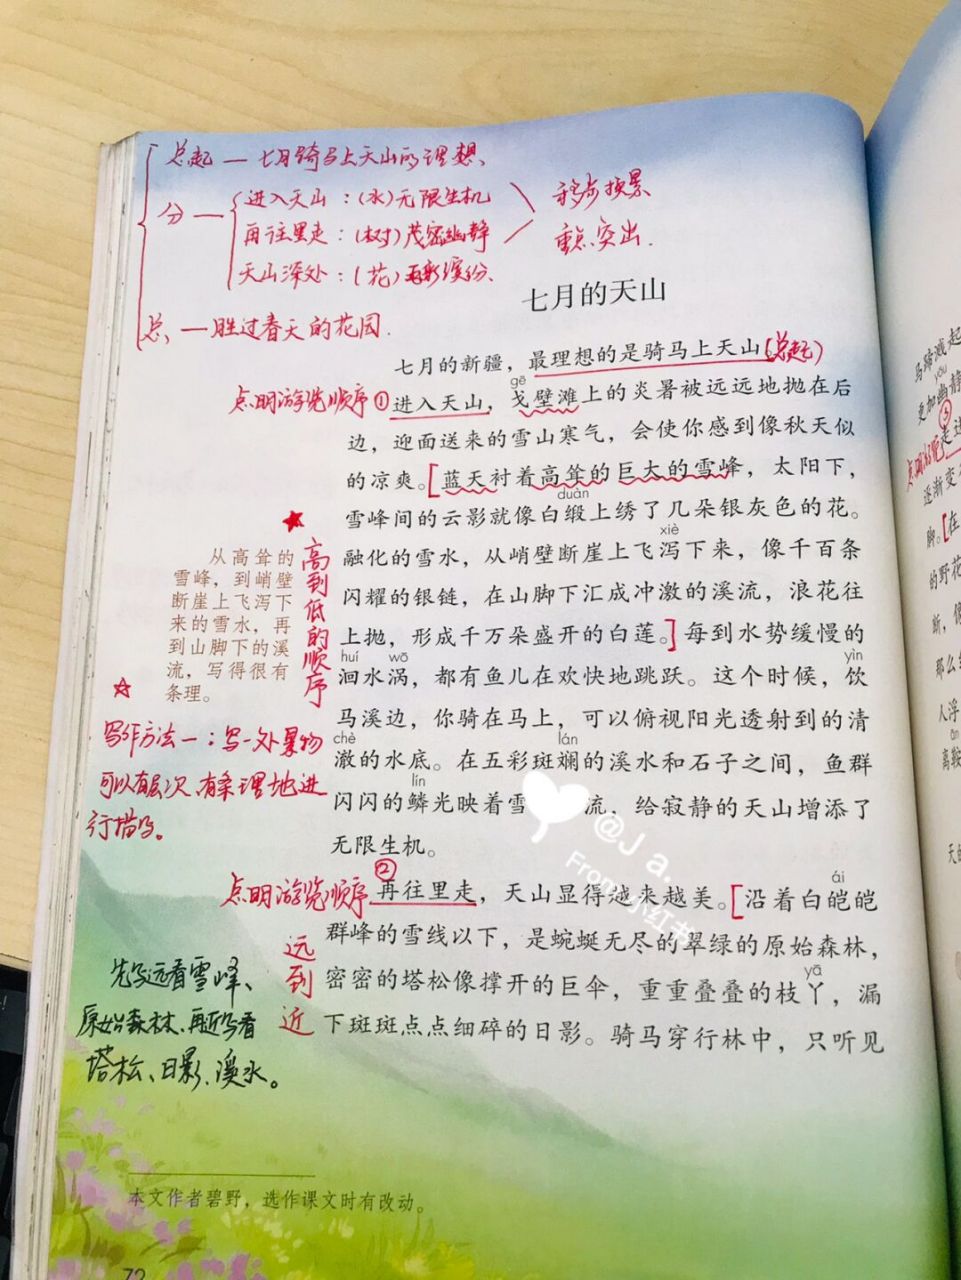 总起一七月骑马上天山的理想、
分一进入天山：(水)无限生机
再往里走：(树)茂密幽静
天山深处：(花)五彩缤纷、
移步换景
重点突出.
总、一胜过春天的花园.
七月的天山
七月的新疆，最理想的是骑马上天山(总起)
点明游览顺序①进入天山，戈壁滩上的炎暑被远远地抛在后
gē
边，迎面送来的雪山寒气，会使你感到像秋天似
的凉爽。[蓝天衬着高耸的巨大的雪峰，太阳下，
duàn
雪峰间的云影就像白缎上绣了几朵银灰色的花。
xiè
融化的雪水，从峭壁断崖上飞泻下来，像千百条
闪耀的银链，在山脚下汇成冲激的溪流，浪花往
上抛，形成千万朵盛开的白莲。]每到水势缓慢的
huí wō yìn
洄水涡，都有鱼儿在欢快地跳跃。这个时候，饮
马溪边，你骑在马上，可以俯视阳光透射到的清
chè lán
澈的水底。在五彩斑斓的溪水和石子之间，鱼群
lín
闪闪的鳞光映着雪 流，给寂静的天山增添了
无限生机。
点明游览顺序②再往里走，天山显得越来越美。[沿着白皑皑
ái
群峰的雪线以下，是蜿蜒无尽的翠绿的原始森林，
密密的塔松像撑开的巨伞，重重叠叠的枝丫，漏
yā
下斑斑点点细碎的日影。骑马穿行林中，只听见
从高耸的
雪峰，到峭壁
断崖上飞泻下
来的雪水，再
到山脚下的溪
流，写得很有
条理。
高到低的顺序
写作方法一：写一处景物
可以有层次、有条理地进
行描写。
远到近
先写远看雪峰、
原始森林、再近写看
塔松、日影、溪水。
本文作者碧野，选作课文时有改动。
72
@J a.
From 小红书
马蹄溅起
yōu
更加幽静
③
走进
逐渐变
脚。[在
的野花
断，像
那么
人浮
ān
高鞍
天的